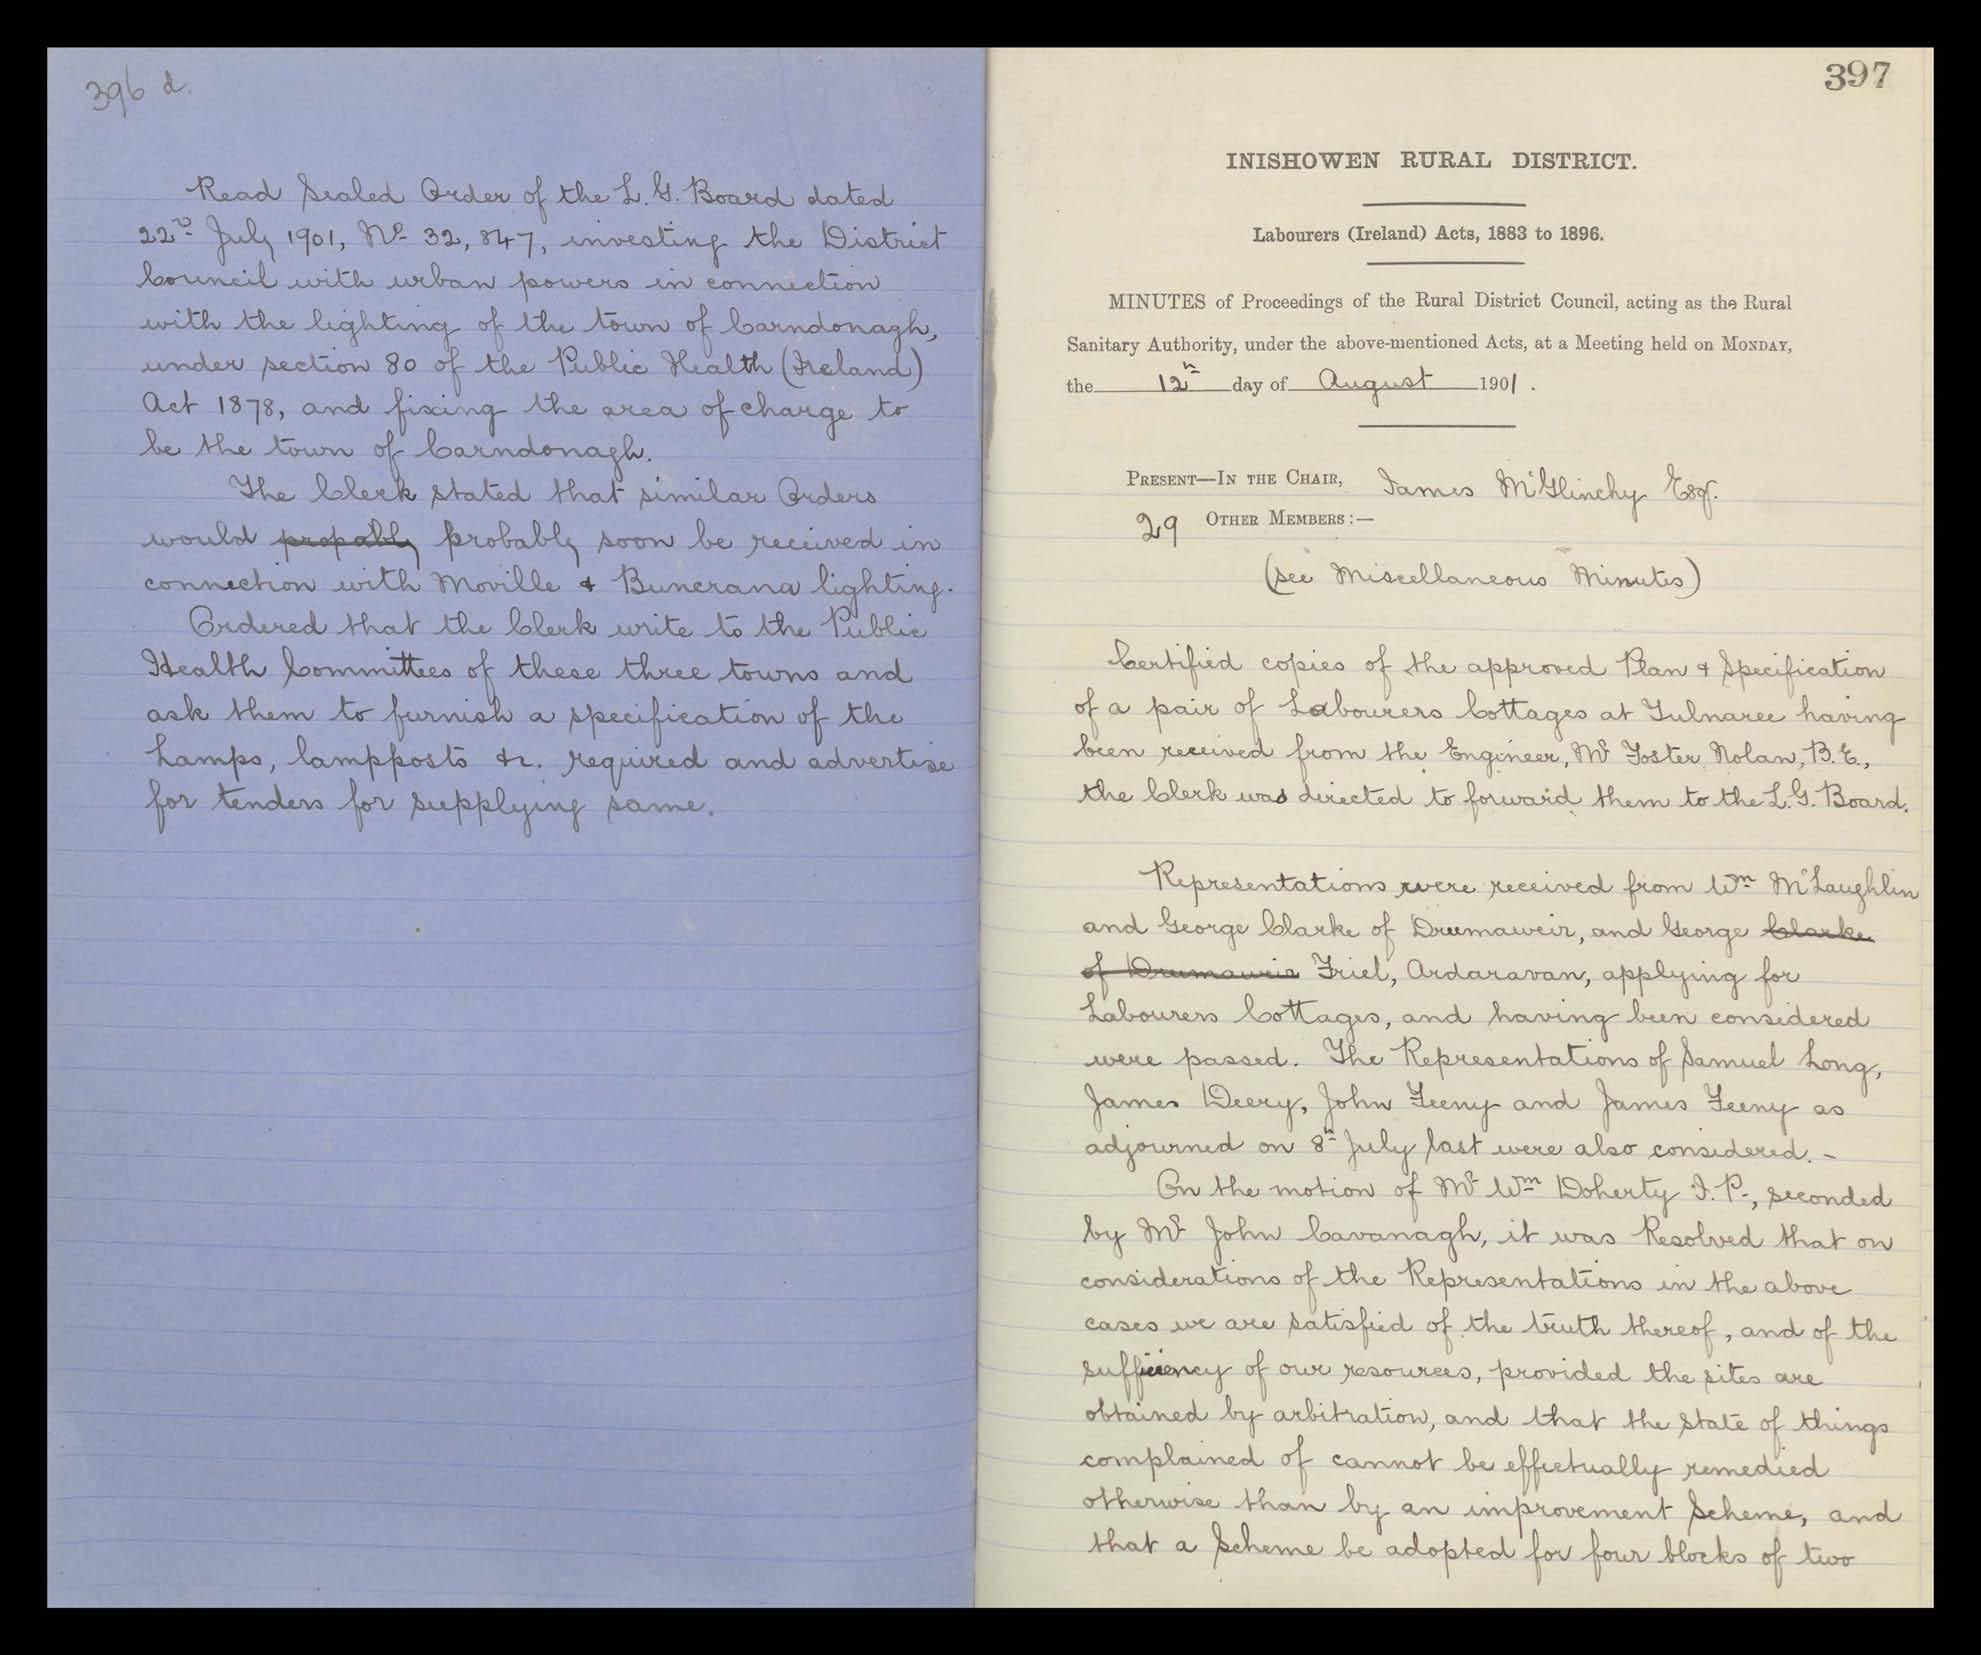 396 d.
Read Sealed Order of the L. G. Board dated
22nd July 1901, No 32,847, investing the District
Council with urban powers in connection
with the lighting of the town of Carndonagh,
under section 80 of the Public Health (Ireland)
Act 1878, and fixing the area of charge to
be the town of Carndonagh.
The Clerk stated that similar Orders
would propably probably soon be received in
connection with Moville & Buncrana lighting.
Ordered that the Clerk write to the Public
Health Committees of these three towns and
ask them to furnish a specification of the
Lamps, lampposts &c. required and advertise
for tenders for supplying same.
397
INISHOWEN RURAL DISTRICT.
Labourers (Ireland) Acts, 1883 to 1896.
MINUTES of Proceedings of the Rural District Council, acting as the Rural
Sanitary Authority, under the above-mentioned Acts, at a Meeting held on MONDAY,
the 12th day of August 1901.
PRESENT—IN THE CHAIR, James McGlinchy Esqr.
29 OTHER MEMBERS:—
(see Miscellaneous Minutes)
Certified copies of the approved Plan & Specification
of a pair of Labourers Cottages at Tulnaree having
been received from the Engineer, Mr Foster Nolan, B.E.,
the Clerk was directed to forward them to the L.G. Board.
Representations were received from Wm McLaughlin
and George Clarke of Drumaweir, and George Clarke
of Drumauria Friel, Ardaravan, applying for
Labourers Cottages, and having been considered
were passed. The Representations of Samuel Long,
James Deery, John Feeny and James Feeny as
adjourned on 8th July last were also considered. -
On the motion of Mr Wm Doherty J.P., seconded
by Mr John Cavanagh, it was Resolved that on
considerations of the Representations in the above
cases we are satisfied of the truth thereof, and of the
sufficiency of our resources, provided the sites are
obtained by arbitration, and that the state of things
complained of cannot be effectually remedied
otherwise than by an improvement Scheme, and
that a Scheme be adopted for four blocks of two